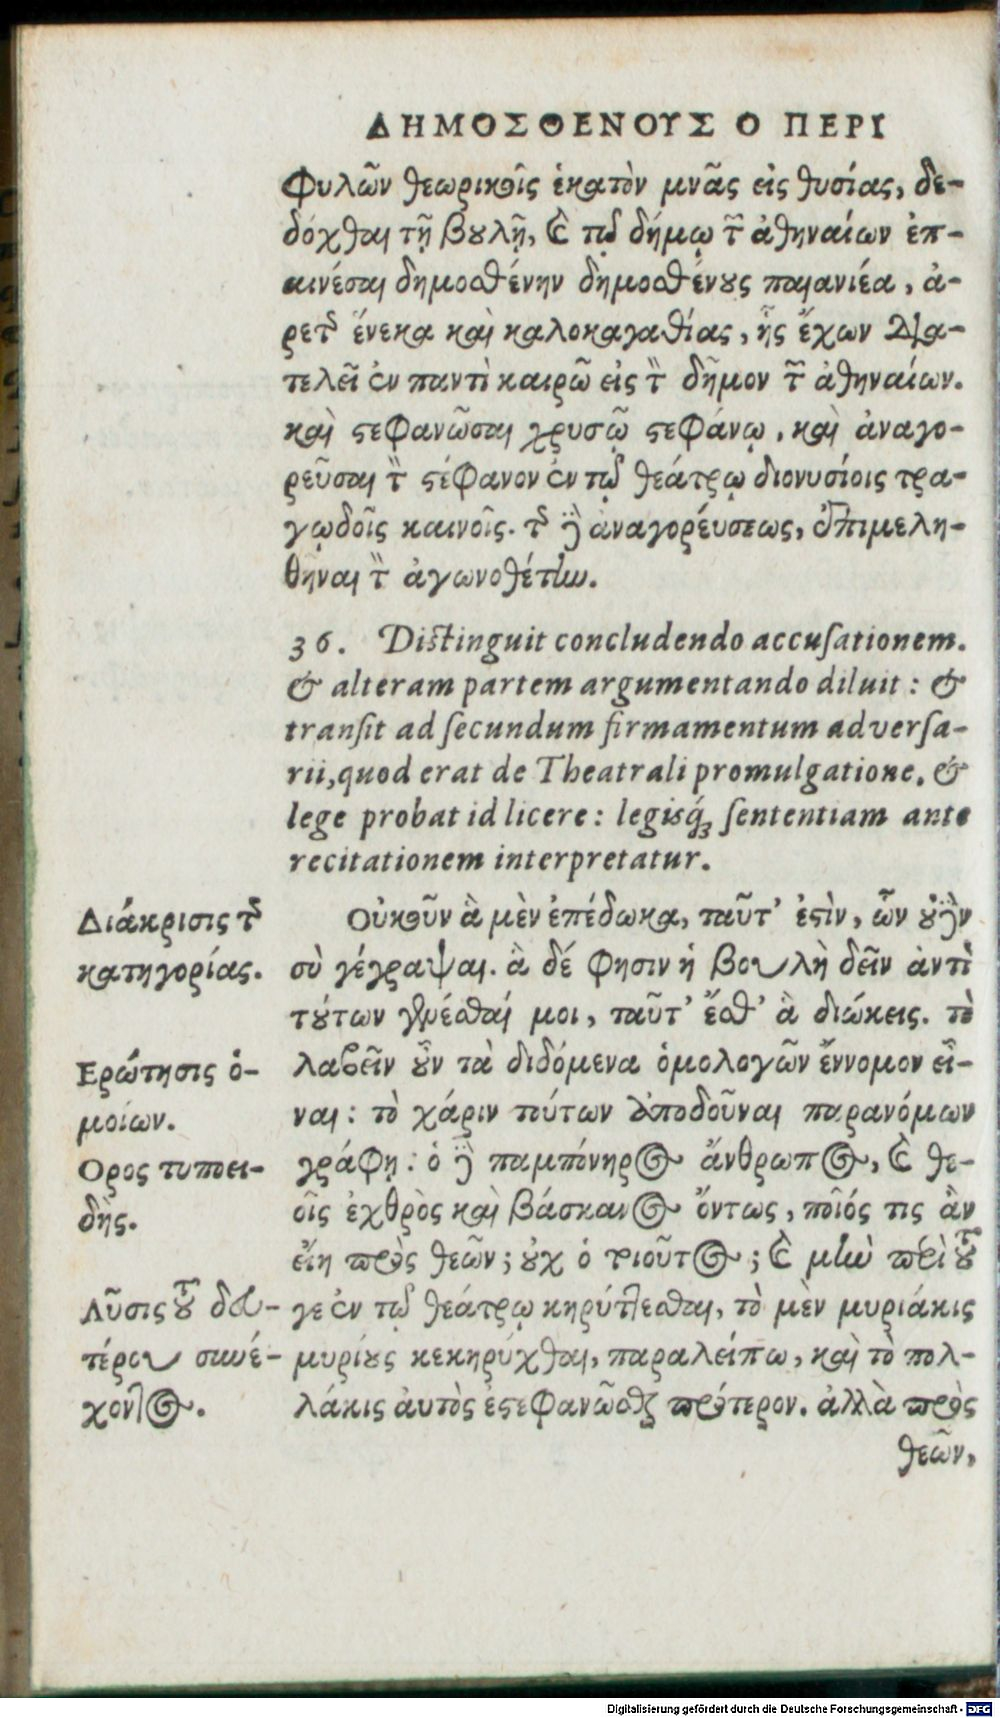 ΔΗΜΟΣΘΕΝΟΥΣ Ο ΠΕΡΙ
φυλῶν θεωρικοῖς ἑκατὸν μνᾶς εἰς θυσίας, δε-
δόχθαι τῇ βουλῇ, καὶ τῷ δήμῳ τῶν ἀθηναίων ἐπ-
αινέσαι δημοσθένην δημοσθένους παιανιέα, ἀ-
ρετῆς ἕνεκα καὶ καλοκαγαθίας, ἧς ἔχων δια-
τελεῖ ἐν παντὶ καιρῶ εἰς τὸν δῆμον τῶν ἀθηναίων.
καὶ στεφανῶσαι χρυσῷ στεφάνῳ, καὶ ἀναγο-
ρεῦσαι τὸν στέφανον ἐν τῷ θεάτρῳ διονυσίοις τρα-
γῳδοῖς καινοῖς. τῆς δὲ ἀναγορέυσεως, ἐπιμελη-
θῆναι τὸν ἀγωνοθέτην.
36. Distinguit concludendo accusationem.
& alteram partem argumentando diluit: &
transit ad secundum firmamentum aduersa-
rii, quod erat de Theatrali promulgatione. &
lege probat id licere: legisq́; sententiam ante
recitationem interpretatur.
Διάκρισις τῆς
κατηγορίας.
Οὐκοῦν ἃ μὲν ἐπέδωκα, ταῦτ' ἐστὶν, ὧν οὐδὲν
σὺ γέγραψαι. ἃ δέ φησιν ἡ βουλὴ δεῖν ἀντὶ
τούτων γενέσθαί μοι, ταῦτ' ἔσθ' ἃ διώκεις. τὸ
Ερώτησις ὁ-
μοίων.
λαβεῖν οὖν τὰ διδόμενα ὁμολογῶν ἔννομον εἶ-
ναι: τὸ χάριν τούτων ἀποδοῦναι παρανόμων
Ορος τυποει-
δὴς.
γράφῃ: ὁ δὲ παμπόνηρος ἄνθρωπος, καὶ θε-
οῖς ἐχθρὸς καὶ βάσκανος ὄντως, ποῖός τις ἂν
εἴη πρὸς θεῶν; οὐχ ὁ τοιοῦτος; καὶ μὴν περὶ τοῦ
Λῦσις τοῦ δευ-
τέρου συνέ-
χοντος.
γε ἐν τῷ θεάτρῳ κηρύττεσθαι, τὸ μὲν μυριάκις
μυρίους κεκηρύχθαι, παραλείπω, καὶ τὸ πολ-
λάκις ἀυτὸς ἐστεφανῶσθαι πρότερον. ἀλλὰ πρὸς
θεῶν,
Digitalisierung gefördert durch die Deutsche Forschungsgemeinschaft - DFG